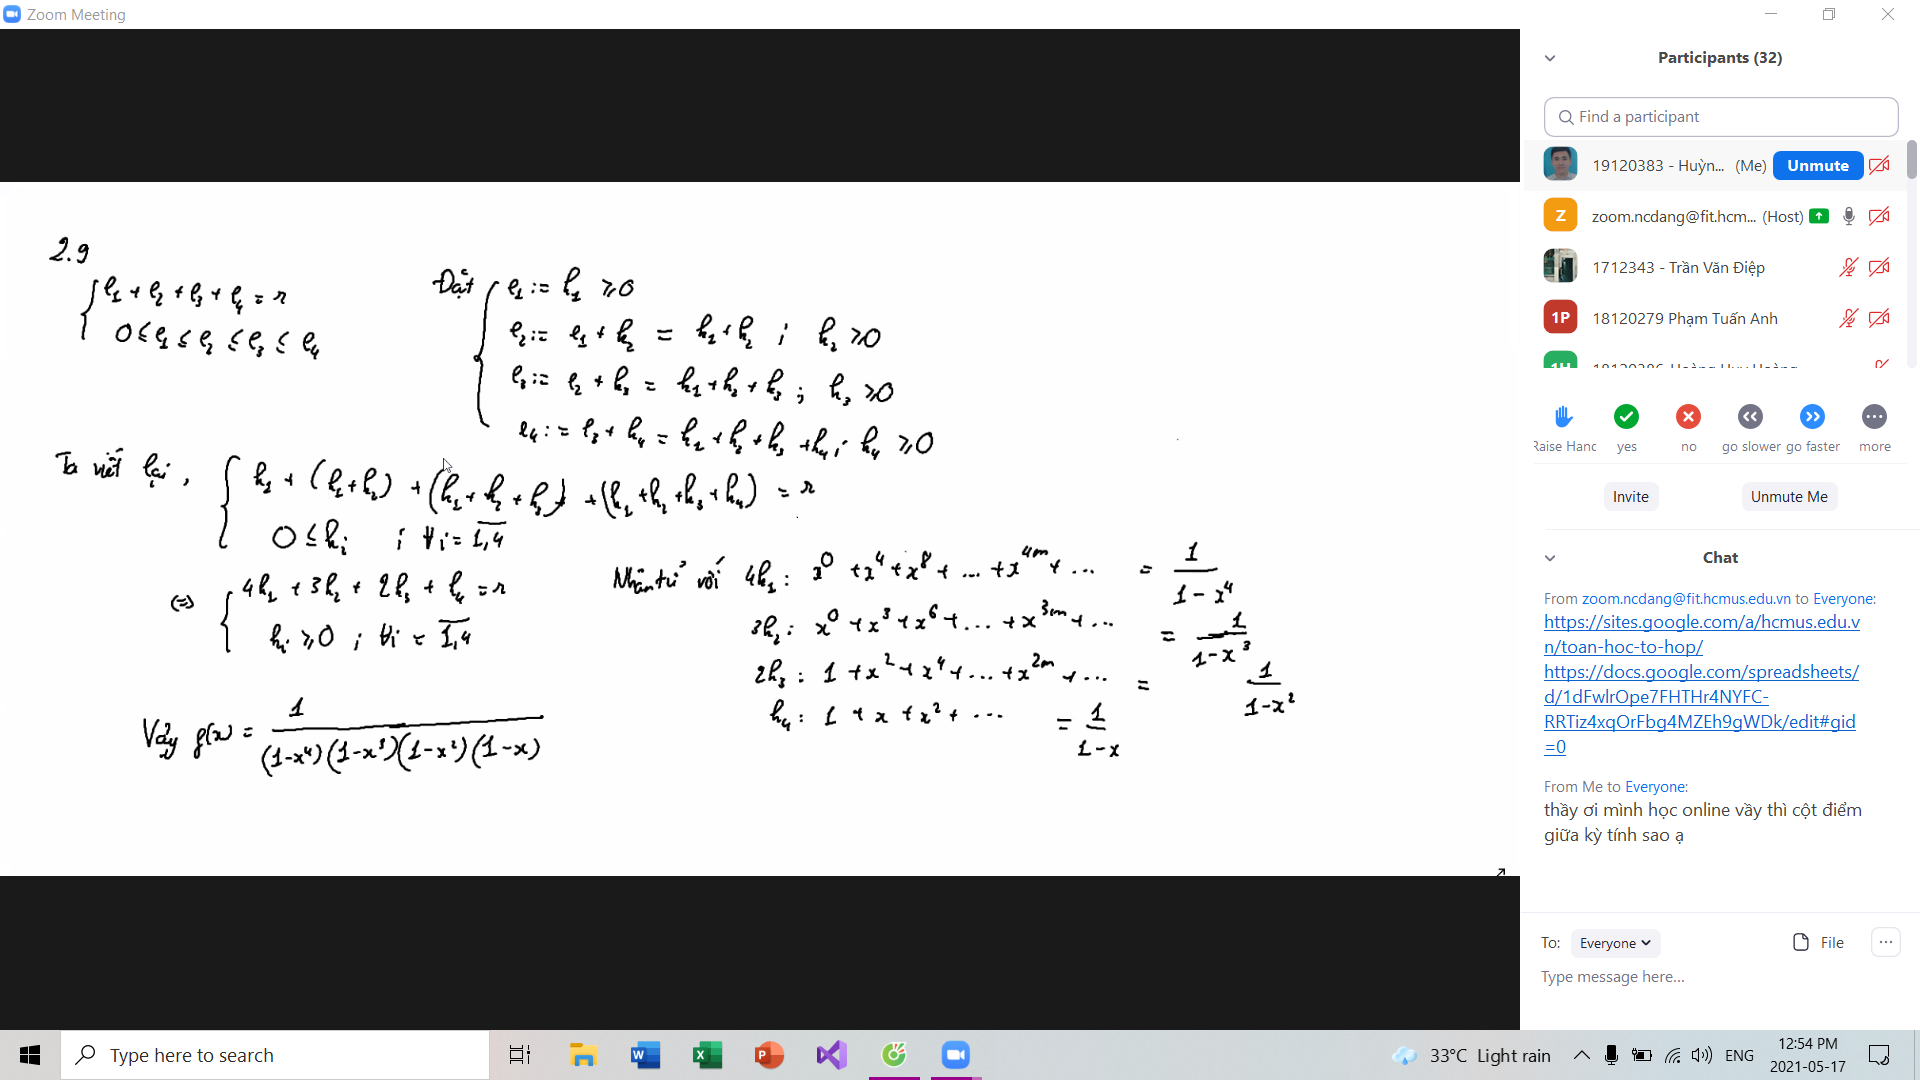 Zoom Meeting
2.9
e₁ + e₂ + e₃ + e₄ = r
0 ≤ e₁ ≤ e₂ ≤ e₃ ≤ e₄
Đặt e₁ := h₁ ≥ 0
e₂ := e₁ + h₂ = h₁ + h₂ ; h₂ ≥ 0
e₃ := e₂ + h₃ = h₁ + h₂ + h₃ ; h₃ ≥ 0
e₄ := e₃ + h₄ = h₁ + h₂ + h₃ + h₄ ; h₄ ≥ 0
Ta viết lại, h₁ + (h₁ + h₂) + (h₁ + h₂ + h₃) + (h₁ + h₂ + h₃ + h₄) = r
0 ≤ hᵢ ; ∀i = 1,4
(=) 4h₁ + 3h₂ + 2h₃ + h₄ = r
hᵢ ≥ 0 ; ∀i = 1,4
Nhân tử với 4h₁ : x⁰ + x⁴ + x⁸ + ... + x⁴ᵐ + ... = 1/(1-x⁴)
3h₂ : x⁰ + x³ + x⁶ + ... + x³ᵐ + ... = 1/(1-x³)
2h₃ : 1 + x² + x⁴ + ... + x²ᵐ + ... = 1/(1-x²)
h₄ : 1 + x + x² + ... = 1/(1-x)
Vậy g(x) = 1/((1-x⁴)(1-x³)(1-x²)(1-x))
Participants (32)
Find a participant
19120383 - Huỳn... (Me) Unmute
Z zoom.ncdang@fit.hcm... (Host)
1712343 - Trần Văn Điệp
1P 18120279 Phạm Tuấn Anh
Raise Hand yes no go slower go faster more
Invite Unmute Me
Chat
From zoom.ncdang@fit.hcmus.edu.vn to Everyone:
https://sites.google.com/a/hcmus.edu.v
n/toan-hoc-to-hop/
https://docs.google.com/spreadsheets/
d/1dFwlrOpe7FHTHr4NYFC-
RRTiz4xqOrFbg4MZEh9gWDk/edit#gid
=0
From Me to Everyone:
thầy ơi mình học online vầy thì cột điểm
giữa kỳ tính sao ạ
To: Everyone File
Type message here...
Type here to search
33°C Light rain
ENG
12:54 PM
2021-05-17